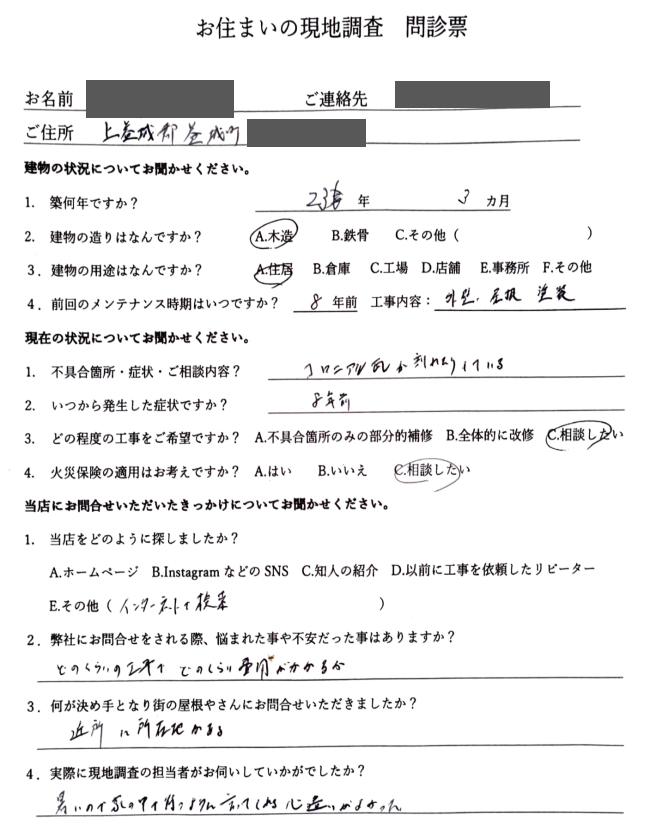 お住まいの現地調査　問診票
お名前　ご連絡先
ご住所　上益城郡益城町
建物の状況についてお聞かせください。
1.　築何年ですか？　23　年　3　カ月
2.　建物の造りはなんですか？　A.木造　B.鉄骨　C.その他（　）
3．建物の用途はなんですか？　A.住居　B.倉庫　C.工場　D.店舗　E.事務所　F.その他
4．前回のメンテナンス時期はいつですか？　8　年前　工事内容：外壁、屋根　塗装
現在の状況についてお聞かせください。
1.　不具合箇所・症状・ご相談内容？　コロニアル瓦が割れたりしている
2.　いつから発生した症状ですか？　8年前
3.　どの程度の工事をご希望ですか？　A.不具合箇所のみの部分的補修　B.全体的に改修　C.相談したい
4.　火災保険の適用はお考えですか？　A.はい　B.いいえ　C.相談したい
当店にお問合せいただいたきっかけについてお聞かせください。
1.　当店をどのように探しましたか？
A.ホームページ　B.Instagram などの SNS　C.知人の紹介　D.以前に工事を依頼したリピーター
E.その他（インターネットで検索　）
2．弊社にお問合せをされる際、悩まれた事や不安だった事はありますか？
どのくらいの工事で　どのくらい費用がかかるか
3．何が決め手となり街の屋根やさんにお問合せいただきましたか？
近所に所在地がある
4．実際に現地調査の担当者がお伺いしていかがでしたか？
暑いので家の中で待つように言ってくれる心遣いがよかった